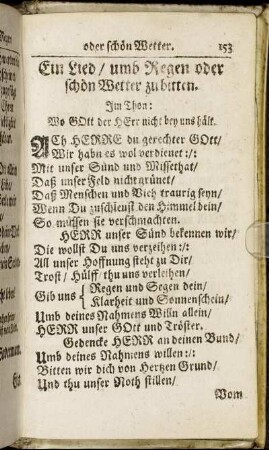 oder schön Wetter. 153
Ein Lied / umb Regen oder
schön Wetter zu bitten.
Im Thon:
Wo GOtt der HErr nicht bey uns hält.
ACh HERRE du gerechter GOtt/
Wir habn es wol verdienet :/:
Mit unser Sünd und Missethat/
Daß unser Feld nicht grünet/
Daß Menschen und Vieh traurig seyn/
Wenn Du zuschleust den Himmel dein/
So müssen sie verschmachten.
HERR unser Sünd bekennen wir/
Die wollst Du uns verzeihen :/:
All unser Hoffnung steht zu Dir/
Trost / Hülff / thu uns verleihen/
Gib uns { Regen und Segen dein/
Klarheit und Sonnenschein/
Umb deines Nahmens Willn allein/
HERR unser GOtt und Tröster.
Gedencke HERR an deinen Bund/
Umb deines Nahmens willen :/:
Bitten wir dich von Hertzen Grund/
Und thu unser Noth stillen/
Vom